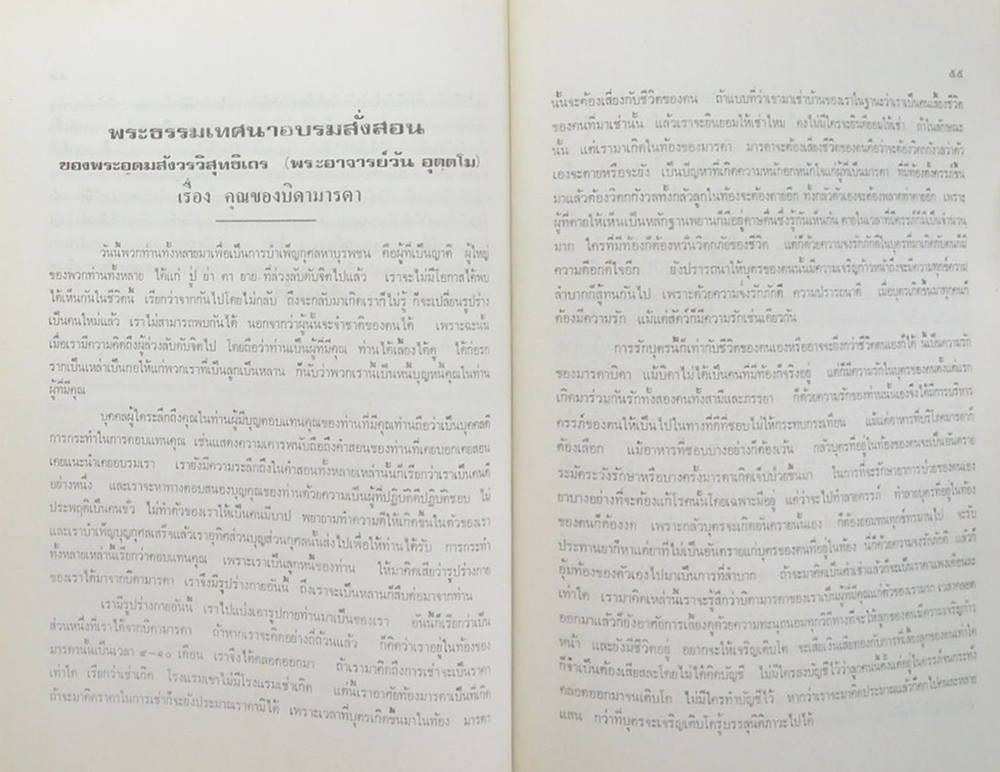 พระธรรมเทศนาอบรมสั่งสอน
ของพระอุดมสังวรวิสุทธิเถร (พระอาจารย์วัน อุตฺตโม)
เรื่อง คุณของบิดามารดา
วันนี้พวกท่านทั้งหลายมาเพื่อเป็นการบำเพ็ญกุศลหาบุรพชน คือผู้ที่เป็นญาติ ผู้ใหญ่
ของพวกท่านทั้งหลาย ได้แก่ ปู่ ย่า ตา ยาย ที่ล่วงลับดับจิตไปแล้ว เราจะไม่มีโอกาสได้พบ
ได้เห็นกันในชีวิตนี้ เรียกว่าจากกันไปโดยไม่กลับ ถึงจะกลับมาเกิดเราก็ไม่รู้ ก็จะเปลี่ยนรูปร่าง
เป็นคนใหม่แล้ว เราไม่สามารถพบกันได้ นอกจากว่าผู้นั้นจะจำชาติของตนได้ เพราะฉะนั้น
เมื่อเรามีความคิดถึงผู้ล่วงลับดับจิตไป โดยถือว่าท่านเป็นผู้ที่มีคุณ ท่านได้เลี้ยงได้ดู ได้ก่อรก
รากเป็นเหล่าเป็นกอให้แก่พวกเราที่เป็นลูกเป็นหลาน ก็นับว่าพวกเรานี้เป็นหนี้บุญหนี้คุณในท่าน
ผู้ที่มีคุณ
บุคคลผู้ใดระลึกถึงคุณในท่านผู้มีบุญตอบแทนคุณของท่านที่มีคุณท่านถือว่าเป็นบุคคลดี
การกระทำในการตอบแทนคุณ เช่นแสดงความเคารพนับถือถึงคำสอนของท่านที่เคยบอกเคยสอน
เคยแนะนำเคยอบรมเรา เรายังมีความระลึกถึงในคำสอนทั้งหลายเหล่านั้นก็เรียกว่าเราเป็นคนดี
อย่างหนึ่ง และเราจะหาทางตอบสนองบุญคุณของท่านด้วยความเป็นผู้ที่ปฏิบัติดีปฏิบัติชอบ ไม่
ประพฤติเป็นคนชั่ว ไม่ทำตัวของเราให้เป็นคนมีบาป พยายามทำความดีให้เกิดขึ้นในตัวของเรา
และเราบำเพ็ญบุญกุศลเสร็จแล้วเราอุทิศส่วนบุญส่วนกุศลนั้นส่งไปเพื่อให้ท่านได้รับ การกระทำ
ทั้งหลายเหล่านี้เรียกว่าตอบแทนคุณ เพราะเราเป็นลูกหนี้ของท่าน ให้มาคิดเสียว่ารูปร่างกาย
ของเราได้มาจากบิดามารดา เราจึงมีรูปร่างกายอันนี้ ถึงเราจะเป็นหลานก็สืบต่อมาจากท่าน
เรามีรูปร่างกายอันนี้ เราไปแบ่งเอารูปกายท่านมาเป็นของเรา อันนี้ก็เรียกว่าเป็น
ส่วนหนึ่งที่เราได้จากบิดามารดา ถ้าหากเราจะคิดอย่างถี่ถ้วนแล้ว ก็คิดว่าเราอยู่ในท้องของ
มารดานั้นเป็นเวลา ๙-๑๐ เดือน เราจึงได้คลอดออกมา ถ้าเรามาคิดถึงการเช่าจะเป็นราคา
เท่าใด เรียกว่าเช่าเกิด โรงแรมเขาไม่มีโรงแรมเช่าเกิด แต่นี้เราอาศัยท้องมารดาเป็นที่เกิด
ถ้าจะมาคิดราคาในการเช่าก็จะยังประมาณราคามิได้ เพราะเวลาที่บุตรเกิดขึ้นมาในท้อง มารดา
๕๕
นั้นจะต้องเสี่ยงกับชีวิตของตน ถ้าแบบที่ว่าเขามาเช่าบ้านของเราในฐานะว่าเราเป็นคนเสี่ยงชีวิต
ของตนที่มาเช่านั้น แล้วเราจะยินยอมให้เช่าไหม คงไม่มีใครจะยินดียอมให้เช่า ถ้าในลักษณะ
นั้น แต่เรามาเกิดในท้องของมารดา มารดาจะต้องเสี่ยงชีวิตของตนคือว่าจะต้องวิตกกังวลว่าตัว
เองจะตายหรือจะยัง เป็นปัญหาที่เกิดความหนักอกหนักใจแก่ผู้ที่เป็นมารดา ที่มีท้องตั้งครรภ์ขึ้น
มาแล้วต้องวิตกกังวลทั้งกลัวลูกในท้องจะต้องตายอีก ทั้งกลัวตัวเองจะต้องพลาดท่าตายอีก เพราะ
ผู้ที่ตายให้เห็นเป็นหลักฐานพยานก็มีอยู่ดาษดื่นซึ่งรู้กันเห็นกัน ตายในเวลาที่มีครรภ์ก็มีเป็นจำนวน
มาก ใครที่มีท้องก็ต้องหวั่นวิตกภัยของชีวิต แต่ก็ด้วยความจงรักภักดีในบุตรที่มาเกิดกับตนก็มี
ความดีอกดีใจอีก ยังปรารถนาให้บุตรของตนนั้นมีความเจริญก้าวหน้าถึงจะมีความทุกข์ความ
ลำบากก็สู้ทนกันไป เพราะด้วยความจงรักภักดี ความปรารถนาดี เมื่อบุตรเกิดขึ้นมาทุกคนก็
ต้องมีความรัก แม้แต่สัตว์ก็มีความรักเช่นเดียวกัน
การรักบุตรนี้ก็เท่ากับชีวิตของตนเองหรืออาจจะยิ่งกว่าชีวิตตนเองก็ได้ นี้เป็นความรัก
ของมารดาบิดา แม้บิดาไม่ได้เป็นคนที่มีท้องก็จริงอยู่ แต่ก็มีความรักในบุตรของตนตั้งแต่แรก
เกิดมาร่วมกันรักทั้งสองคนทั้งสามีและภรรยา ก็ด้วยความรักของท่านนั้นเองจึงได้มีการบริหาร
ครรภ์ของตนให้เป็นไปในทางที่ดีที่ชอบไม่ให้กระทบกระเทือน แม้แต่อาหารที่บริโภคมารดาก็
ต้องเลือก แม้อาหารที่ชอบบางอย่างก็ต้องเว้น กลัวบุตรที่อยู่ในท้องของตนจะเป็นอันตราย
ระมัดระวังรักษาหรือบางครั้งมารดาเกิดเจ็บป่วยขึ้นมา ในการที่จะรักษาอาการป่วยของตนเอง
ยาบางอย่างที่จะต้องแก้โรคนั้นโดยเฉพาะมีอยู่ แต่ว่าจะไปทำลายครรภ์ ทำลายบุตรที่อยู่ในท้อง
ของตนก็ต้องงด เพราะกลัวบุตรจะเกิดอันตรายนั้นเอง ก็ต้องยอมทนทุกข์ทรมานไป จะรับ
ประทานยาก็หาแต่ยาที่ไม่เป็นอันตรายแก่บุตรของตนที่อยู่ในท้อง นี้ก็ด้วยความจงรักภักดี แล้วก็
อุ้มท้องของตัวเองไปมาเป็นการที่ลำบาก ถ้าจะมาคิดเป็นค่าเช่าแล้วก็จะเป็นราคาแพงเดือนละ
เท่าใด เรามาคิดเหล่านี้เราจะรู้สึกว่าบิดามารดาของเราเป็นผู้ที่มีคุณแก่ตัวของเรามาก เวลาคลอด
ออกมาแล้วก็ยังอาศัยการเลี้ยงดูด้วยความทะนุถนอมทุกวิถีทางที่จะให้ลูกของตนมีความเจริญก้าว
หน้า และยังมีชีวิตอยู่ อยากจะให้เจริญเติบโต จะเสียเงินเสียทองกับการที่เลี้ยงลูกของตนเท่าใด
ก็จำเป็นต้องเสียสละโดยไม่ได้คิดบัญชี ไม่มีใครลงบัญชีไว้ว่าลูกคนนี้ตั้งแต่อยู่ในครรภ์จนกระทั่ง
คลอดออกมาจนเติบโต ไม่มีใครทำบัญชีไว้ หากว่าเราจะมาคิดประมาณแล้วก็ตกไปคนละหลาย
แสน กว่าที่บุตรจะเจริญเติบโตรู้บรรลุนิติภาวะไปได้